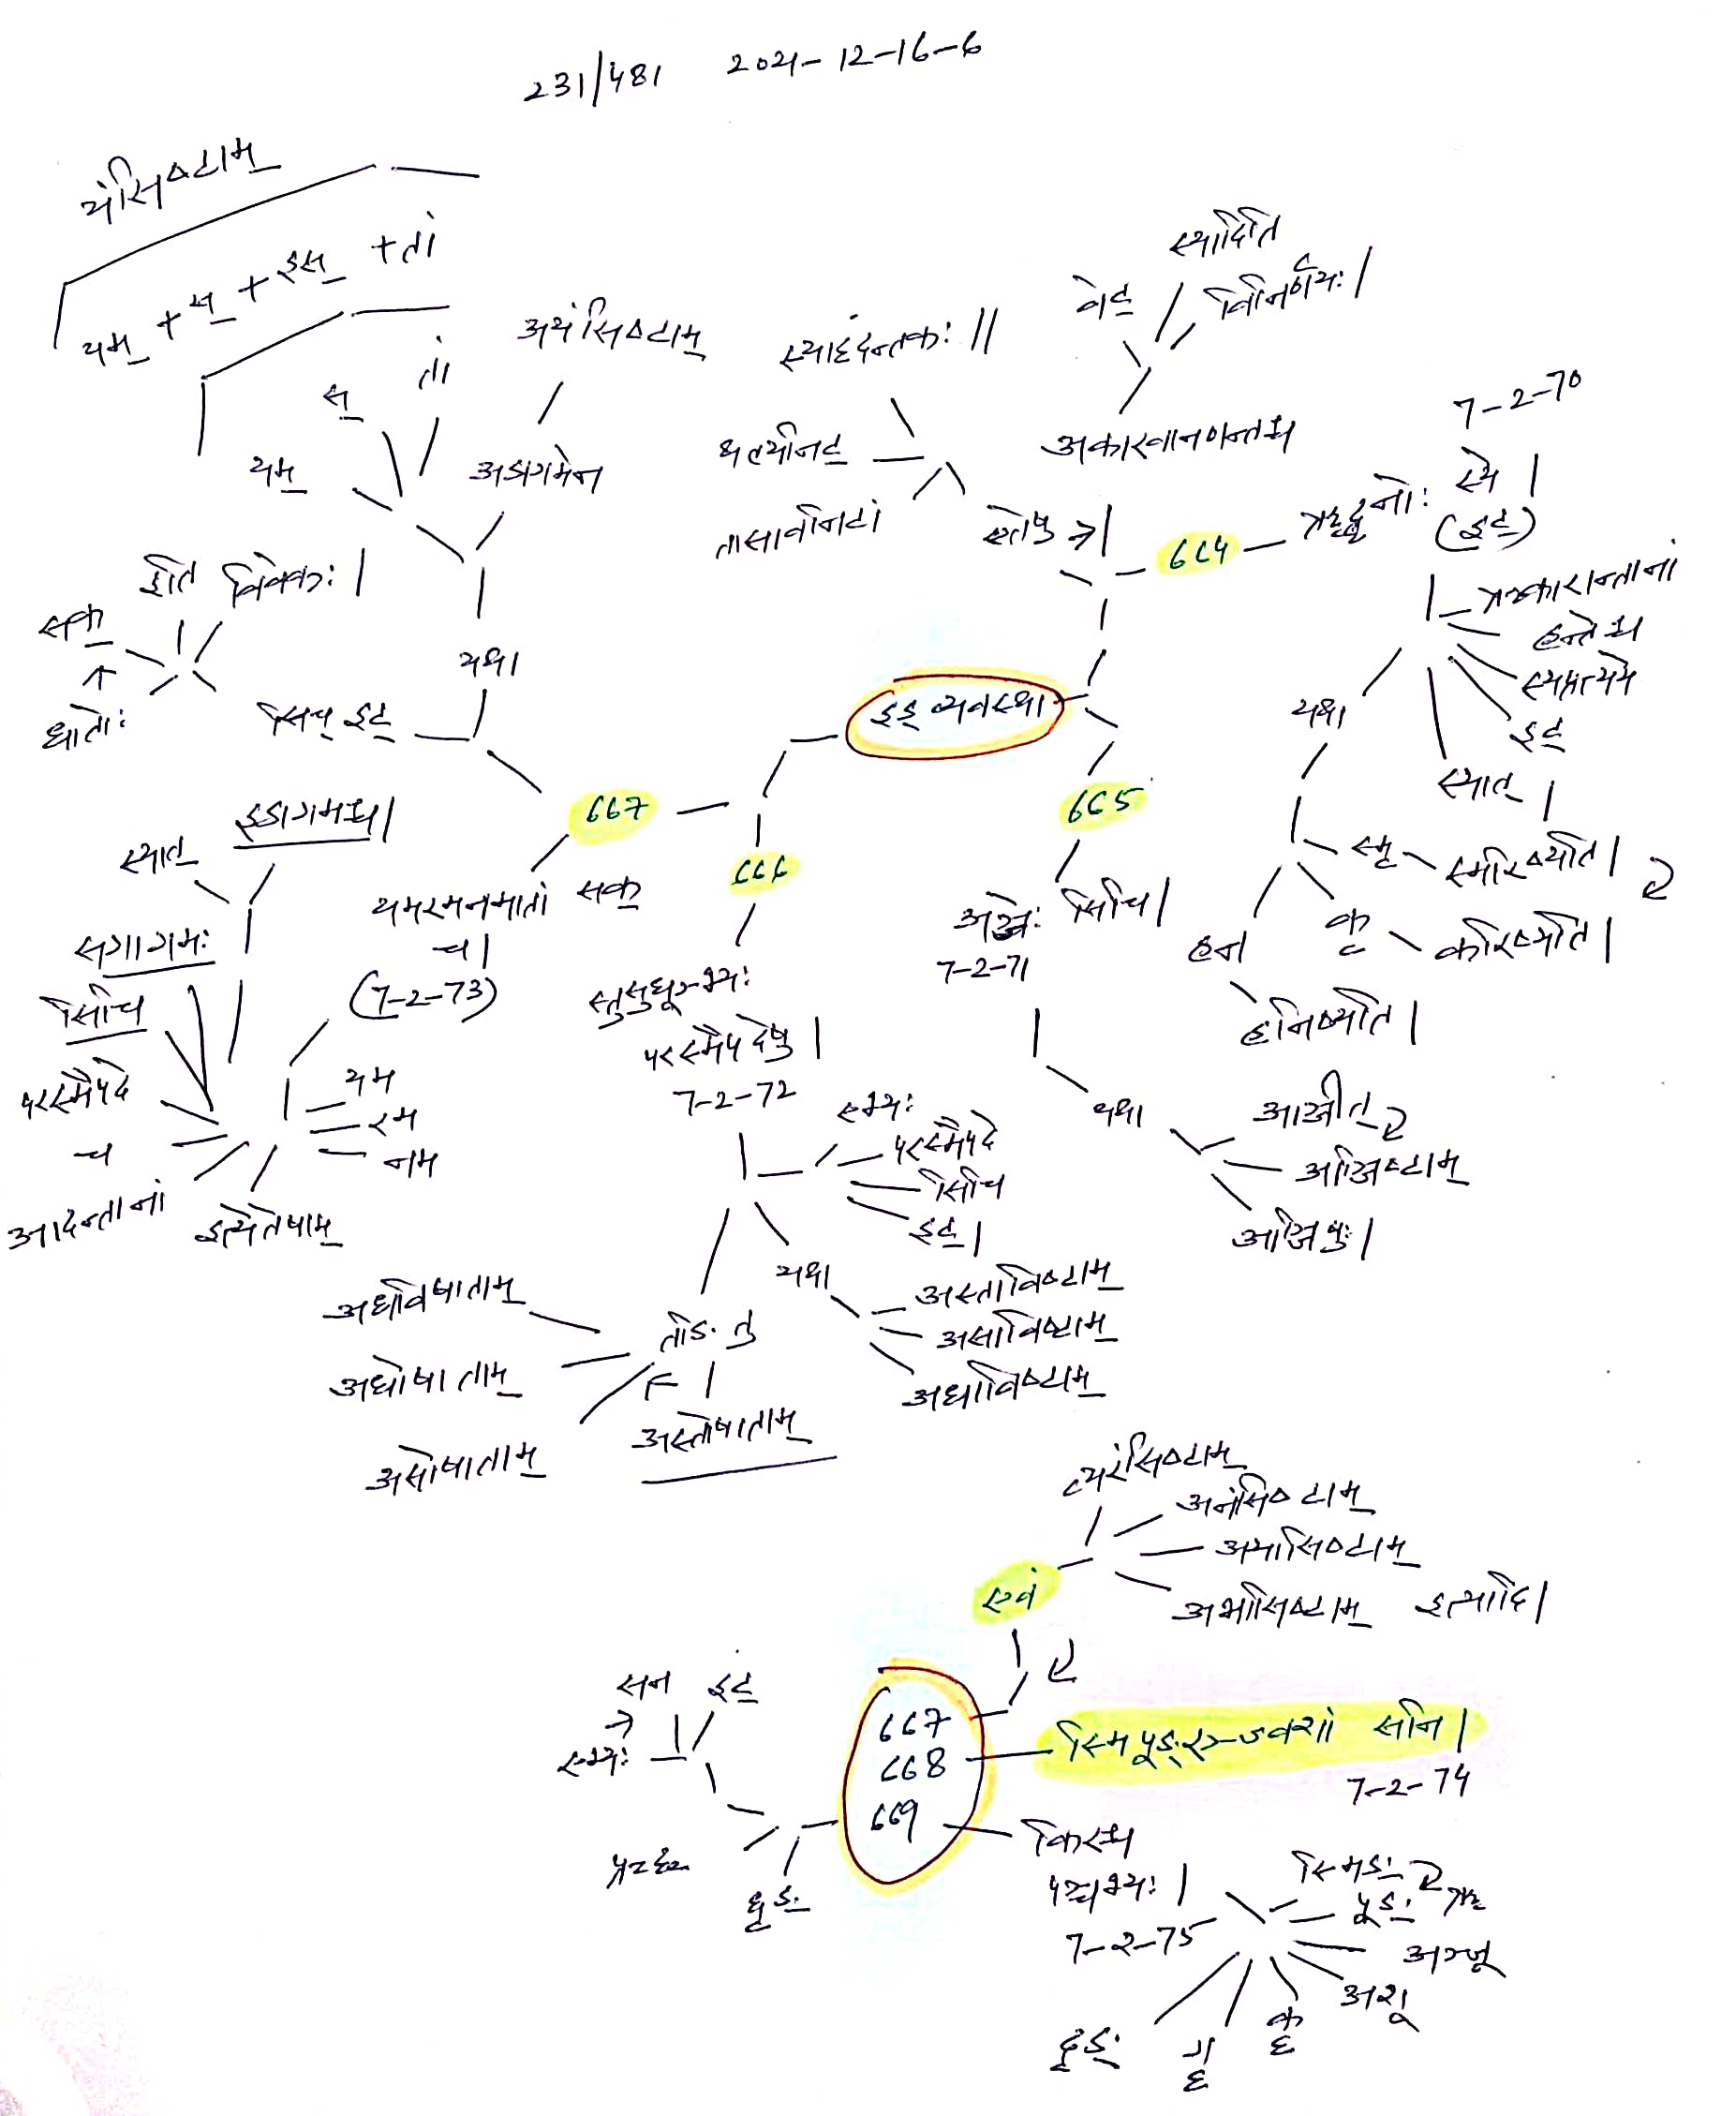 231/481 2021-12-16-6
यंसिष्टाम्
यम् + स् + इस् + तां
यम्
स्
तां
अयंसिष्टाम्
अडागमेन
यथा
सक्
इति
विवेकः |
धातोः
सिच् इट्
स्याद्दन्तकः ||
थल्यनिट्
तासावनिटां
वेट्
स्यादिति
विनिर्णयः |
अकारवानजन्तश्च
664
ऋद्धनोः स्ये |
(इट्)
7-2-70
ऋकारान्तानां
हन्तेश्च
स्यप्रत्यये
इट्
स्यात् |
यथा
स्मृ
स्मरिष्यति |
कृ
करिष्यति |
हन
हनिष्यति |
इड् व्यवस्था
665
अञ्जेः सिचि |
7-2-71
यथा
आञ्जीत्
आञ्जिष्टाम्
आञ्जिषुः |
666
स्तुसुधूञ्भ्यः
परस्मैपदेषु |
7-2-72
एभ्यः
परस्मैपदे
सिचि
इट् |
यथा
अस्ताविष्टाम्
असाविष्टाम्
अधाविष्टाम्
तङि तु
अधविषाताम्
अधोषाताम्
असोषाताम्
अस्तोषाताम्
667
यमरमनमातां सक्
च |
(7-2-73)
यम
रम
नम
इत्येतेषाम्
आदन्तानां
च
परस्मैपदे
सिचि
सगागमः
स्यात्
इडागमश्च |
एवं
व्यरंसिष्टाम्
अनंसिष्टाम्
अयासिष्टाम्
अभासिष्टाम् इत्यादि |
667
668
669
स्मिपूङ्रञ्ज्वशां सनि |
7-2-74
किरश्च
पञ्चभ्यः |
7-2-75
स्मिङः
पूङः
ऋ
अञ्जू
अशू
कॄ
गॄ
दृङः
सन
इट्
एभ्यः
धृङः
प्रच्छ